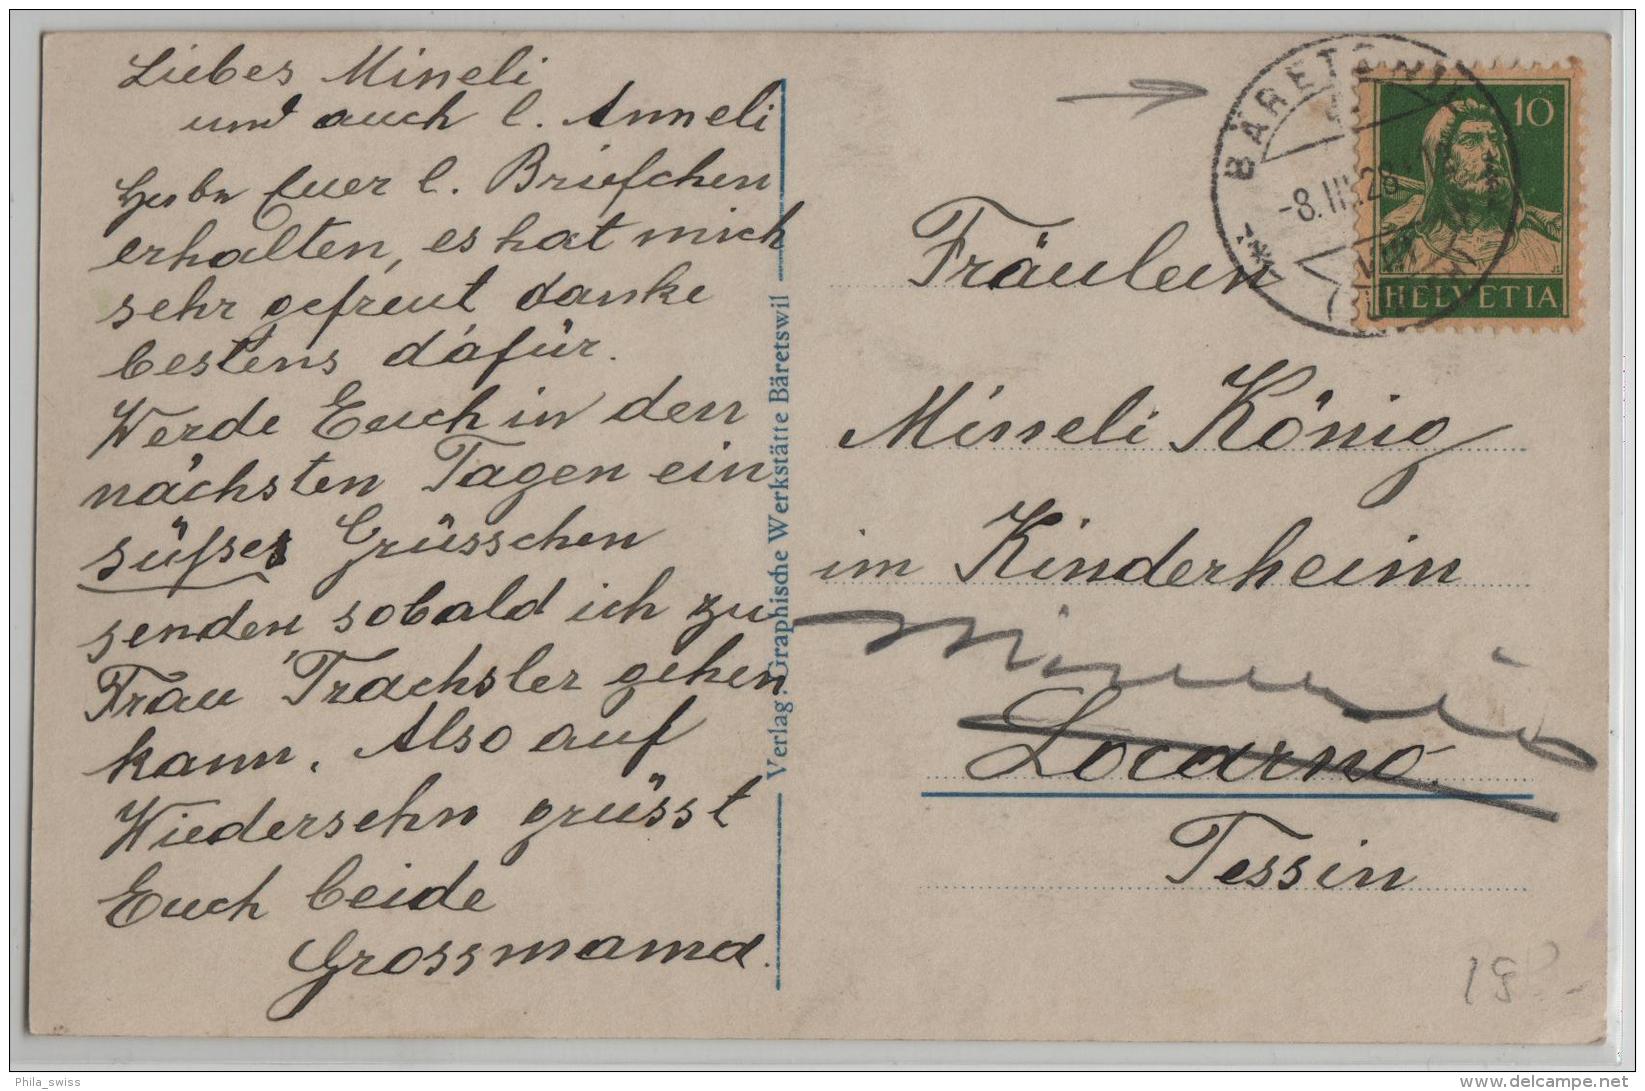 Liebes Mineli
und auch l. Anneli
Habe Euer l. Briefchen
erhalten, es hat mich
sehr gefreut danke
bestens dafür.
Werde Euch in den
nächsten Tagen ein
süsses Grüsschen
senden sobald ich zu
Frau Trachsler gehen
kann. Also auf
Wiedersehn grüsst
Euch beide
Grossmama.
Verlag: Graphische Werkstätte Bäretswil
BÄRETSWIL
-8.III.28
(ZÜRICH)
10
HELVETIA
Fräulein
Mineli König
im Kinderheim
Minusio
Locarno.
Tessin
Phila_swiss
delcampe.net